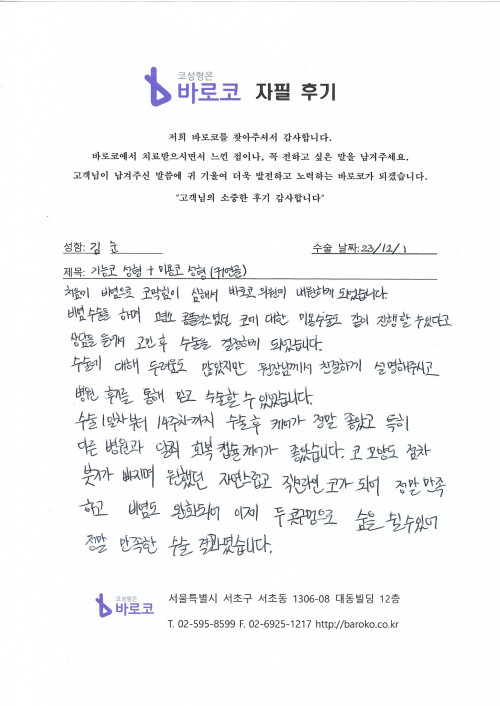 코성형은
바로코 자필 후기
저희 바로코를 찾아주셔서 감사합니다.
바로코에서 치료받으시면서 느낀 점이나, 꼭 전하고 싶은 말을 남겨주세요.
고객님이 남겨주신 말씀에 귀 기울여 더욱 발전하고 노력하는 바로코가 되겠습니다.
"고객님의 소중한 후기 감사합니다"
성함: 김 순 수술 날짜: 23/12/1
제목: 기능코 성형 + 미용코 성형 (귀연골)
처음에 비염으로 코막힘이 심해서 바로코 의원에 내원하게 되었습니다.
비염수술을 하며 평소 콤플렉스였던 코에 대한 미용수술도 같이 진행할 수 있다고
상담을 듣게되 고민 후 수술을 결정하게 되었습니다.
수술에 대해 두려움도 많았지만 원장님께서 친절하게 설명해주시고
병원 후기를 통해 믿고 수술할 수 있었습니다.
수술 1일차부터 14주차까지 수술 후 케어가 정말 좋았고 특히
다른 병원과 달리 회복 캡슐 케어가 좋았습니다. 코 모양도 점차
붓기가 빠지며 원했던 자연스럽고 직선라인 코가 되어 정말 만족
하고 비염도 완화되어 이제 두 콧구멍으로 숨을 쉴 수 있어
정말 만족한 수술 결과였습니다.
코성형은
바로코
서울특별시 서초구 서초동 1306-08 대동빌딩 12층
T. 02-595-8599 F. 02-6925-1217 http://baroko.co.kr